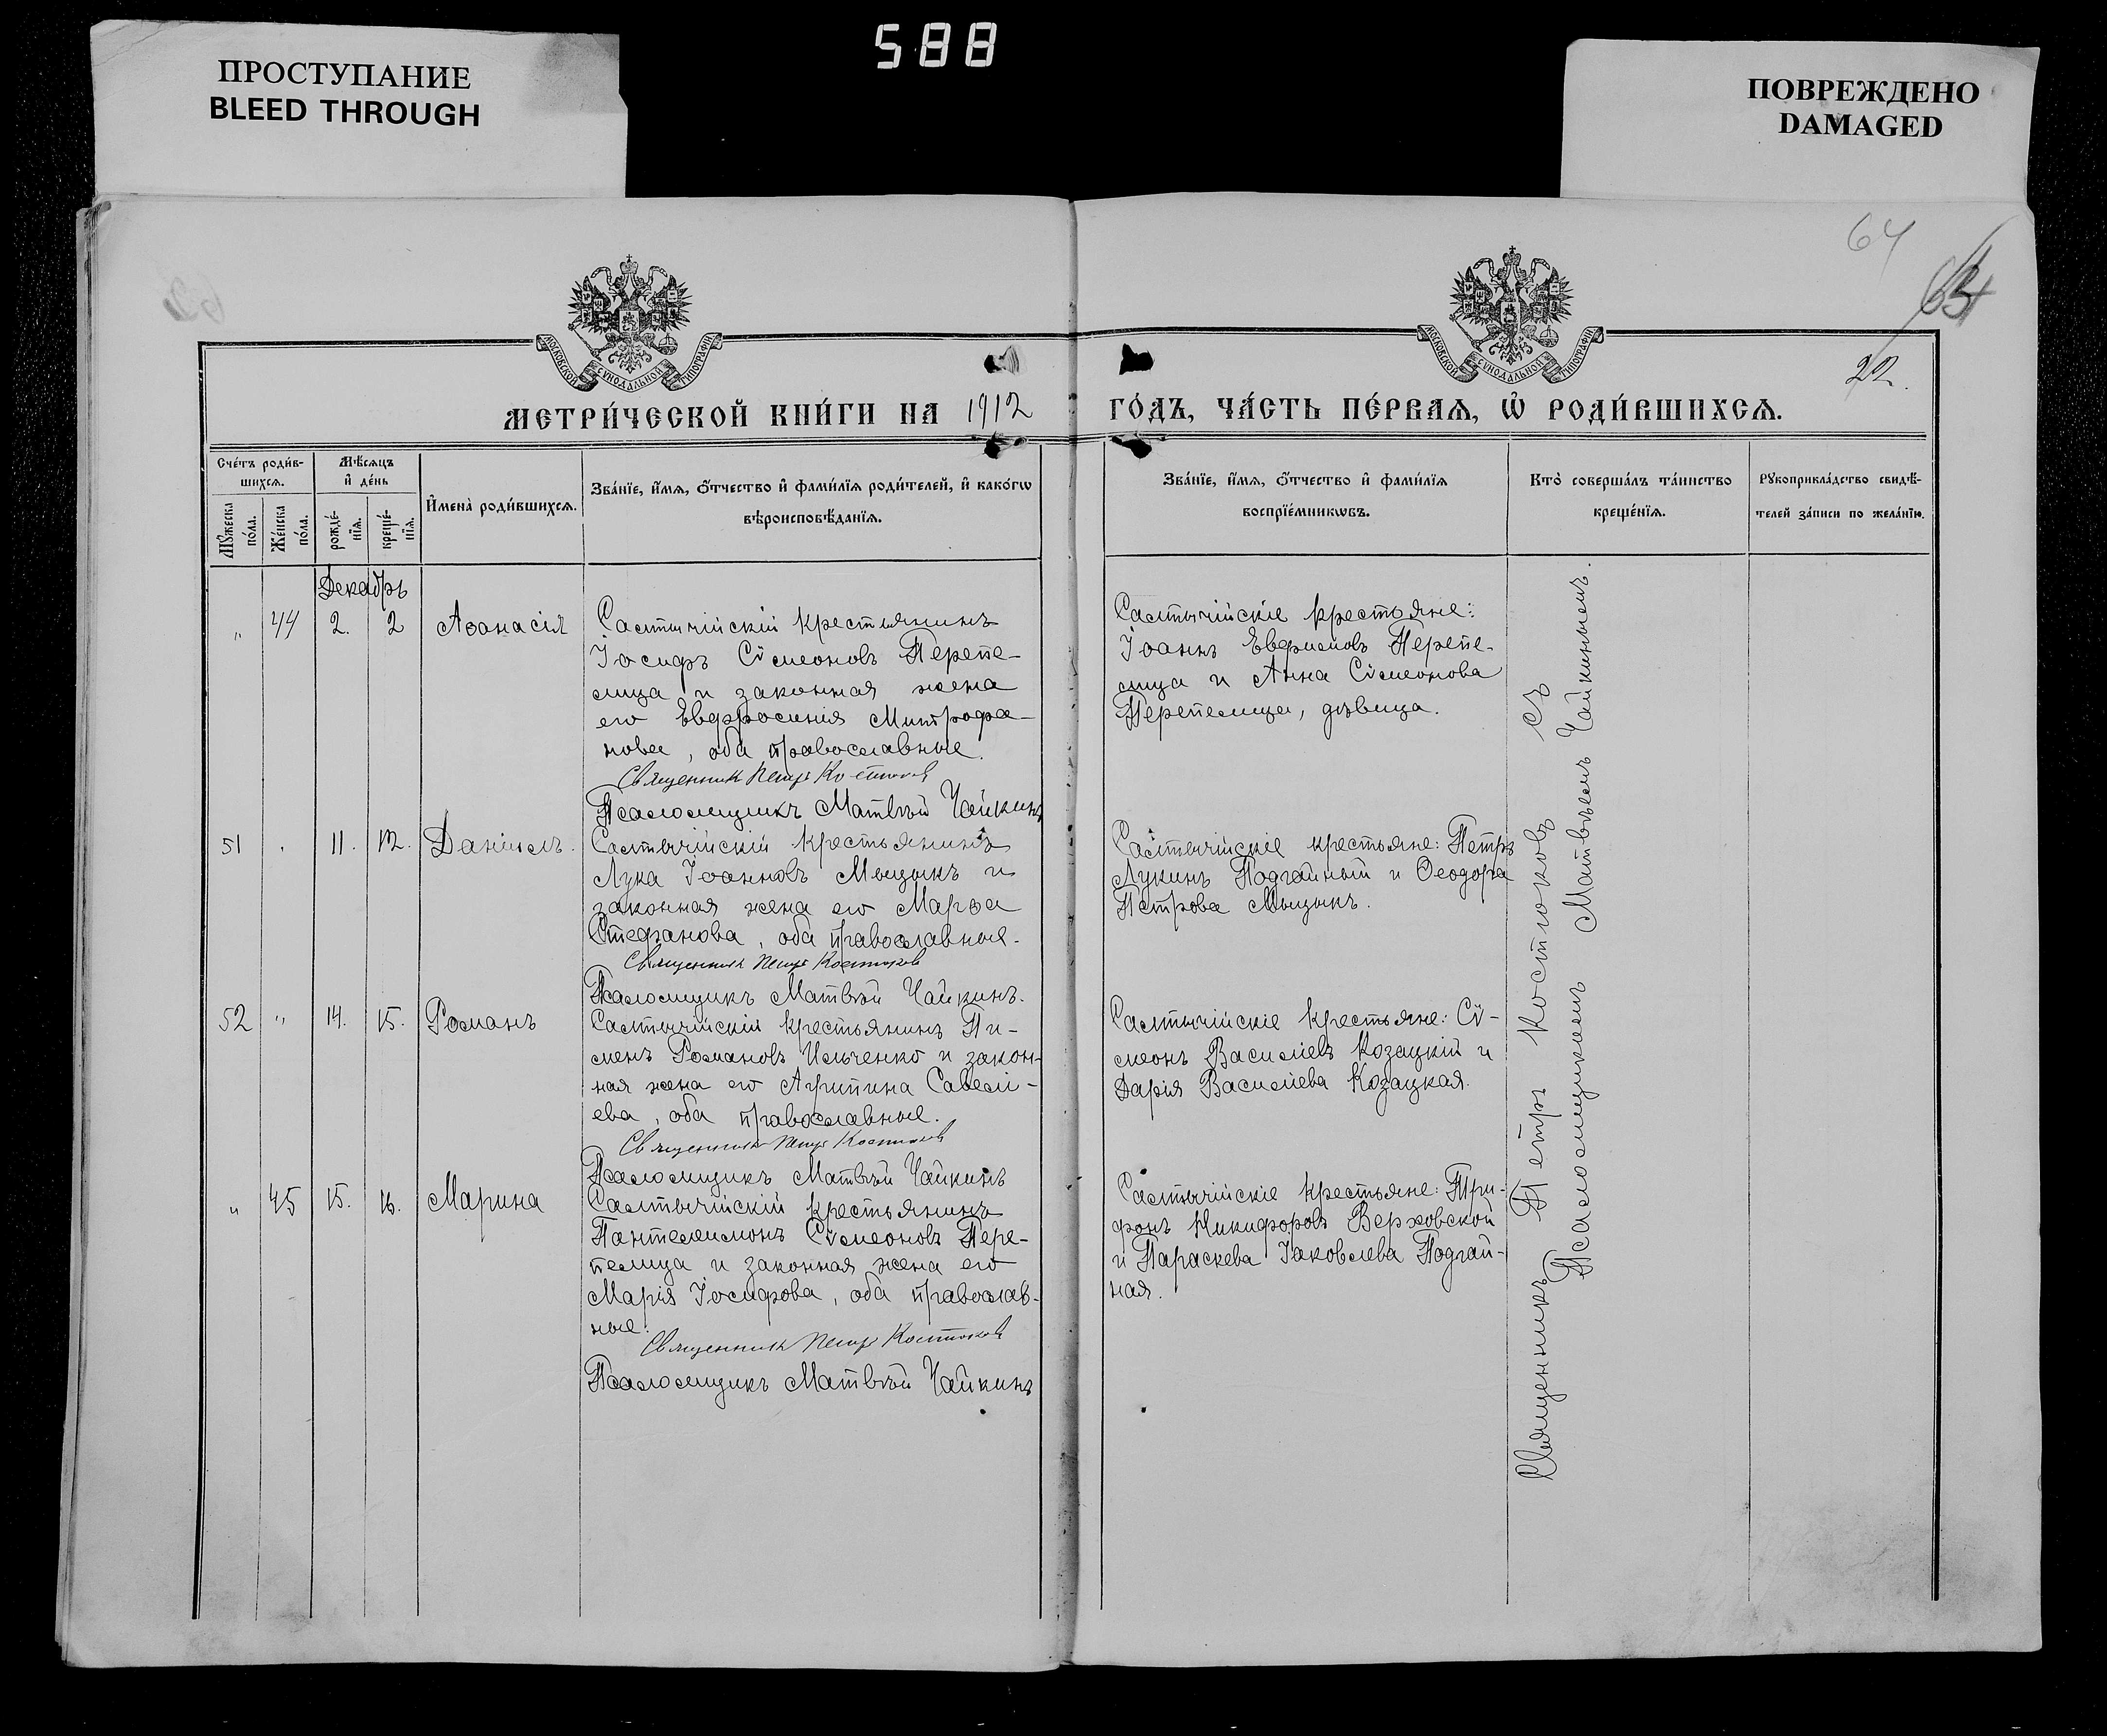 588
ПРОСТУПАНИЕ
BLEED THROUGH
ПОВРЕЖДЕНО
DAMAGED
64
63
22.
МОСКОВСКОЙ СѴНОДАЛЬНОЙ ТИПОГРАФІИ
МОСКОВСКОЙ СѴНОДАЛЬНОЙ ТИПОГРАФІИ
МЕТРИ́ЧЕСКОЙ КНИ́ГИ НА 1912 ГО́ДЪ, ЧА́СТЬ ПЕ́РВАѦ, Ѡ҆ РОДИ́ВШИХСѦ.
Сче́тъ роди́в-
шихсѧ.
Мꙋ́жеска
по́ла.
Же́нска
по́ла.
Мѣ́сѧцъ
и҆ де́нь
рожде́-
нїѧ.
креще́-
нїѧ.
И҆мена̀ роди́вшихсѧ.
Зва́нїе, и҆́мѧ, ѻ҆́тчество и҆ фамѝлїѧ роди́телей, и҆ како́гѡ
вѣроисповѣ́данїѧ.
Зва́нїе, и҆́мѧ, ѻ҆́тчество и҆ фамѝлїѧ
воспрїе́мникѡвъ.
Кто̀ соверша́лъ та́инство
креще́нїѧ.
Рꙋкоприкла́дство свидѣ́-
телей за́писи по жела́нїю.
Декабрь
" 44 2. 2 Аѳанасія
Салтычійскій крестьянинъ
Іосифъ Сѵмеоновъ Перепе-
лица и законная жена
его Евфросинія Митрофа-
нова, оба православные.
Священник Петръ Костюковъ
Псаломщикъ Матвѣй Чайкинъ
Салтычійскіе крестьяне:
Іоаннъ Евфимовъ Перепе-
лица и Анна Сѵмеонова
Перепелица, дѣвица.
51 . 11. 12. Даніилъ.
Салтычійскій крестьянинъ
Лука Іоанновъ Мыцыкъ и
законная жена его Марѳа
Стефанова, оба православные.
Священникъ Петръ Костюковъ
Псаломщикъ Матвѣй Чайкинъ.
Салтычійскіе крестьяне: Петръ
Лукинъ Подгайный и Ѳеодора
Петрова Мыцыкъ.
52 " 14. 15. Романъ
Салтычійскій крестьянинъ Пи-
менъ Романовъ Ильченко и закон-
ная жена его Агрипина Савелі-
ева, оба православные.
Священникъ Петръ Костюковъ
Псаломщикъ Матвѣй Чайкинъ
Салтычійскіе крестьяне: Сѵ-
меонъ Василіевъ Козацкій и
Дарія Василіева Козацкая.
" 45 15. 16. Марина
Салтычійскій крестьянинъ
Пантелеимонъ Сѵмеоновъ Пере-
пелица и законная жена его
Марія Іосифова, оба православ-
ные.
Священникъ Петръ Костюковъ
Псаломщикъ Матвѣй Чайкинъ
Салтычійскіе крестьяне: Три-
фонъ Никифоровъ Верховской
и Параскева Іаковлева Подгай-
ная.
Священникъ Петръ Костюковъ съ
Псаломщикомъ Матвѣемъ Чайкинымъ.